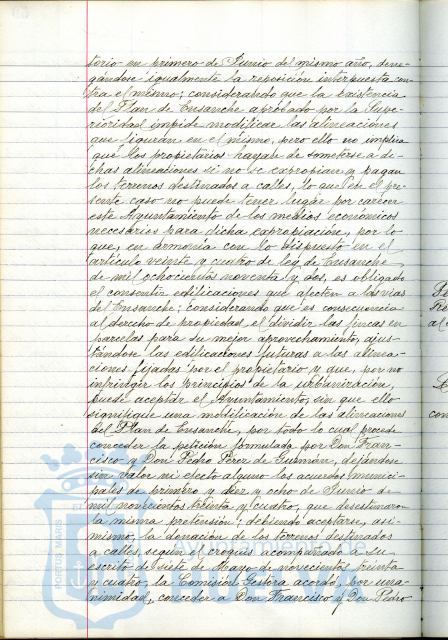 torio en primero de Junio del mismo año, dene-
gándose igualmente la reposición interpuesta con-
tra el mismo; considerando que la existencia
del Plan de Ensanche aprobado por la Supe-
rioridad impide modificar las alineaciones
que figuran en el mismo, pero ello no implica
que los propietarios hayan de someterse a di-
chas alineaciones si no se expropian y pagan
los terrenos destinados a calles, lo que en el pre-
sente caso no puede tener lugar por carecer
este Ayuntamiento de los medios económicos
necesarios para dicha expropiación, por lo
que, en armonía con lo dispuesto en el
artículo veinte y cuatro de ley de Ensanche
de mil ochocientos noventa y dos, es obligado
el consentir edificaciones que afecten a las vías
del Ensanche; considerando que es consecuencia
al derecho de propiedad, el dividir las fincas en
parcelas para su mejor aprovechamiento, ajus-
tándose las edificaciones futuras a las alinea-
ciones fijadas por el propietario y que, por no
infringir los principios de la urbanización,
puede aceptar el Ayuntamiento, sin que ello
signifique una modificación de las alineaciones
del Plan de Ensanche, por todo lo cual procede
conceder la petición formulada por Don Fran-
cisco y Don Pedro Pérez de Guzmán, dejándose
sin valor ni efecto alguno los acuerdos munici-
pales de primero y diez y ocho de Junio de
mil novecientos treinta y cuatro, que desestimaron
la misma pretensión; debiendo aceptarse, asi-
mismo, la donación de los terrenos destinados
a calles, según el croquis acompañado a su
escrito de siete de Mayo de novecientos treinta
y cuatro, la Comisión Gestora acordó, por una-
nimidad, conceder a Don Francisco y Don Pedro